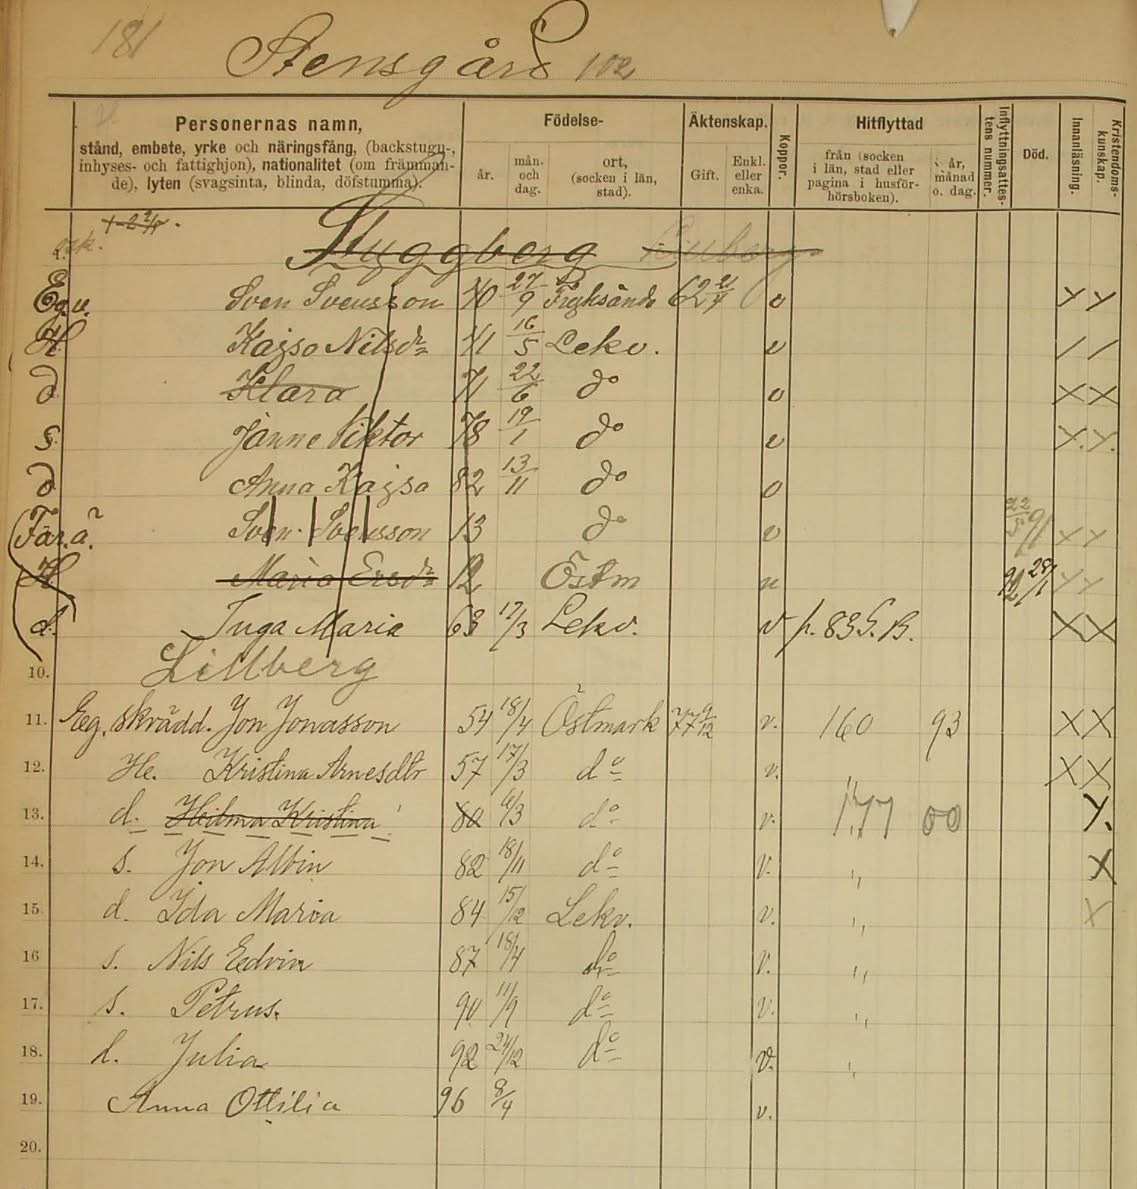 181
Stensgård 102
Personernas namn,
stånd, embete, yrke och näringsfång, (backstugu-,
inhyses- och fattighjon), nationalitet (om främman-
de), lyten (svagsinta, blinda, döfstumma).
Födelse-
år.
mån-
och
dag.
ort,
(socken i län,
stad).
Äktenskap.
Gift.
Enkl.
eller
enka.
Koppor.
Hitflyttad
från (socken
i län, stad eller
pagina i husför-
hörsboken).
år,
månad
o. dag.
Inflyttningsattes-
tens nummer.
Död.
Innanläsning.
Kristendoms-
kunskap.
Skuggberg
Eg. Sven Svensson 40 27/9 Fryksände 62 v
H. Kajsa Nilsdr 41 16/5 Lekv. v
d Klara 71 22/6 do v
s. Janne Viktor 78 19/1 do v
d Anna Kajsa 82 13/11 do v
Far.a. Sven Svensson 13 do v 22/3 91
H. Maria Ersdr 12 Östm
d. Inga Maria 63 17/3 Lekv. v p. 83 S.B.
10. Lillberg
11. Eg. skrädd. Jon Jonasson 54 18/4 Östmark 77 9/12 v. 160 93
12. He. Kristina Arnesdtr 57 17/3 do v. "
13. d. Hilma Kristina 80 6/3 do v. 177 00
14. s. Jon Albin 82 18/11 do v. "
15 d. Ida Maria 84 15/12 Lekv. v. "
16 s. Nils Edvin 87 18/4 do v. "
17. s. Petrus. 90 11/9 do v. "
18. d. Julia 92 24/12 do v. "
19. Anna Ottilia 96 8/4 v.
20.